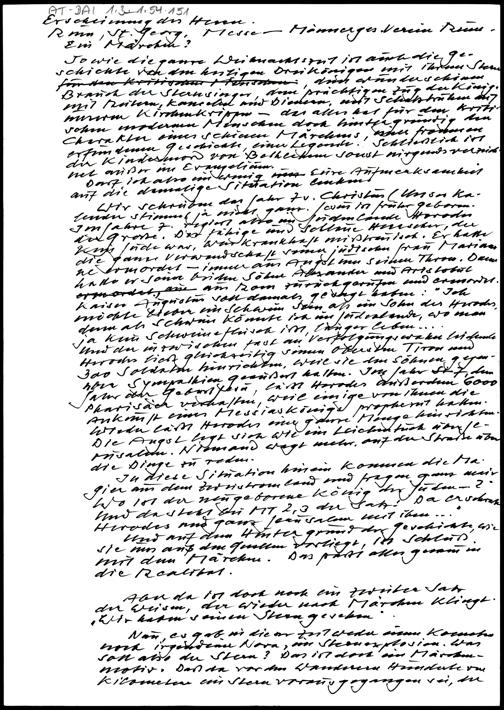 AT-DAI 1.3-1.54.151
Erscheinung des Herrn.
Rum, St. Georg, Messe – Männergesverein Rum.
Ein Märchen?
So wie die ganze Weihnachtszeit ist auch die Ge-
schichte von den heutigen Dreikönigen mit ihrem Stern
dem wunderschönen
Brauch der Sternsinger, dem prächtigen Zug der Könige
mit Reitern, Kamelen und Dienern, mit
unserer Kirchenkrippen – das alles hat für den kriti-
schen modernen Menschen doch hintergründig den
Charakter eines schönen Märchens, einer frommen
erfundenen Geschichte, einer Legende. Schließlich ist
der Kindermord von Bethlehem sonst nirgends verzeich-
net außer im Evangelium.
Darf ich also ein wenig Eure Aufmerksamkeit
auf die damalige Situation lenken.
Wir schreiben das Jahr 7 v. Christus (Unser Ka-
lender stimmt ja nicht ganz, Jesus ist früher geboren.
Im Jahre 7 regiert also im Judenlande Herodes
der Große. Der fähige und schlaue Herrscher, der
kein Jude war, war krankhaft mißtrauisch. Er hatte
die ganze Verwandtschaft seiner jüdischen Frau Mariam-
ne ermordet – immer aus Angst um seinen Thron. Dann
hatte er seine beiden Söhne Alexander und Aristobul
aus Rom zurückgerufen und ermordet.
Kaiser Augustus soll damals gesagt haben: "Ich
möchte lieber ein Schwein sein als ein Sohn des Herodes,
denn als Schwein könnte ich im Judenlande, wo man
ja kein Schweinefleisch ißt, länger leben...."
Und der inzwischen fast an Verfolgungswahn leidende
Herodes ließ gleichzeitig seinen Obersten Tiron und
300 Soldaten hinrichten, weil sie den Söhnen gegen-
über Sympathien geäußert hatten. Im Jahr 7, dem
Jahr der Geburt Jesu, läßt Herodes außerdem 6000
Pharisäer verhaften, weil einige von ihnen die
Ankunft eines Messiaskönigs prophezeit hatten.
Wieder läßt Herodes eine ganze Menge hinrichten.
Die Angst legt sich wie ein Leichentuch über Je-
rusalem. Niemand wagt mehr, auf der Straße über
die Dinge zu reden.
In diese Situation hinein kommen die Ma-
gier aus dem Zweistromland und fragen ganz naiv:
Wo ist der neugeborene König der Juden –?
Und da steht bei Mt 2,3 der Satz: "Da erschrak
Herodes und ganz Jerusalem mit ihm..."
Auf dem Hintergrund der Geschichte, wie
sie uns aus den Quellen vorliegt, ist Schluß
mit dem Märchen. Das paßt alles genau in
die Realität.
Aber da ist doch noch ein zweiter Satz
der Weisen, der wieder nach Märchen klingt.
"Wir haben seinen Stern gesehen".
Nun, es gab in dieser Zeit weder einen Kometen
noch irgendeine Nova, eine Sternexplosion. Was
soll also der Stern? Das ist doch ein Märchen-
motiv. Daß da vor den Wanderern Hunderte von
Kilometern ein Stern vorausgegangen sei, der